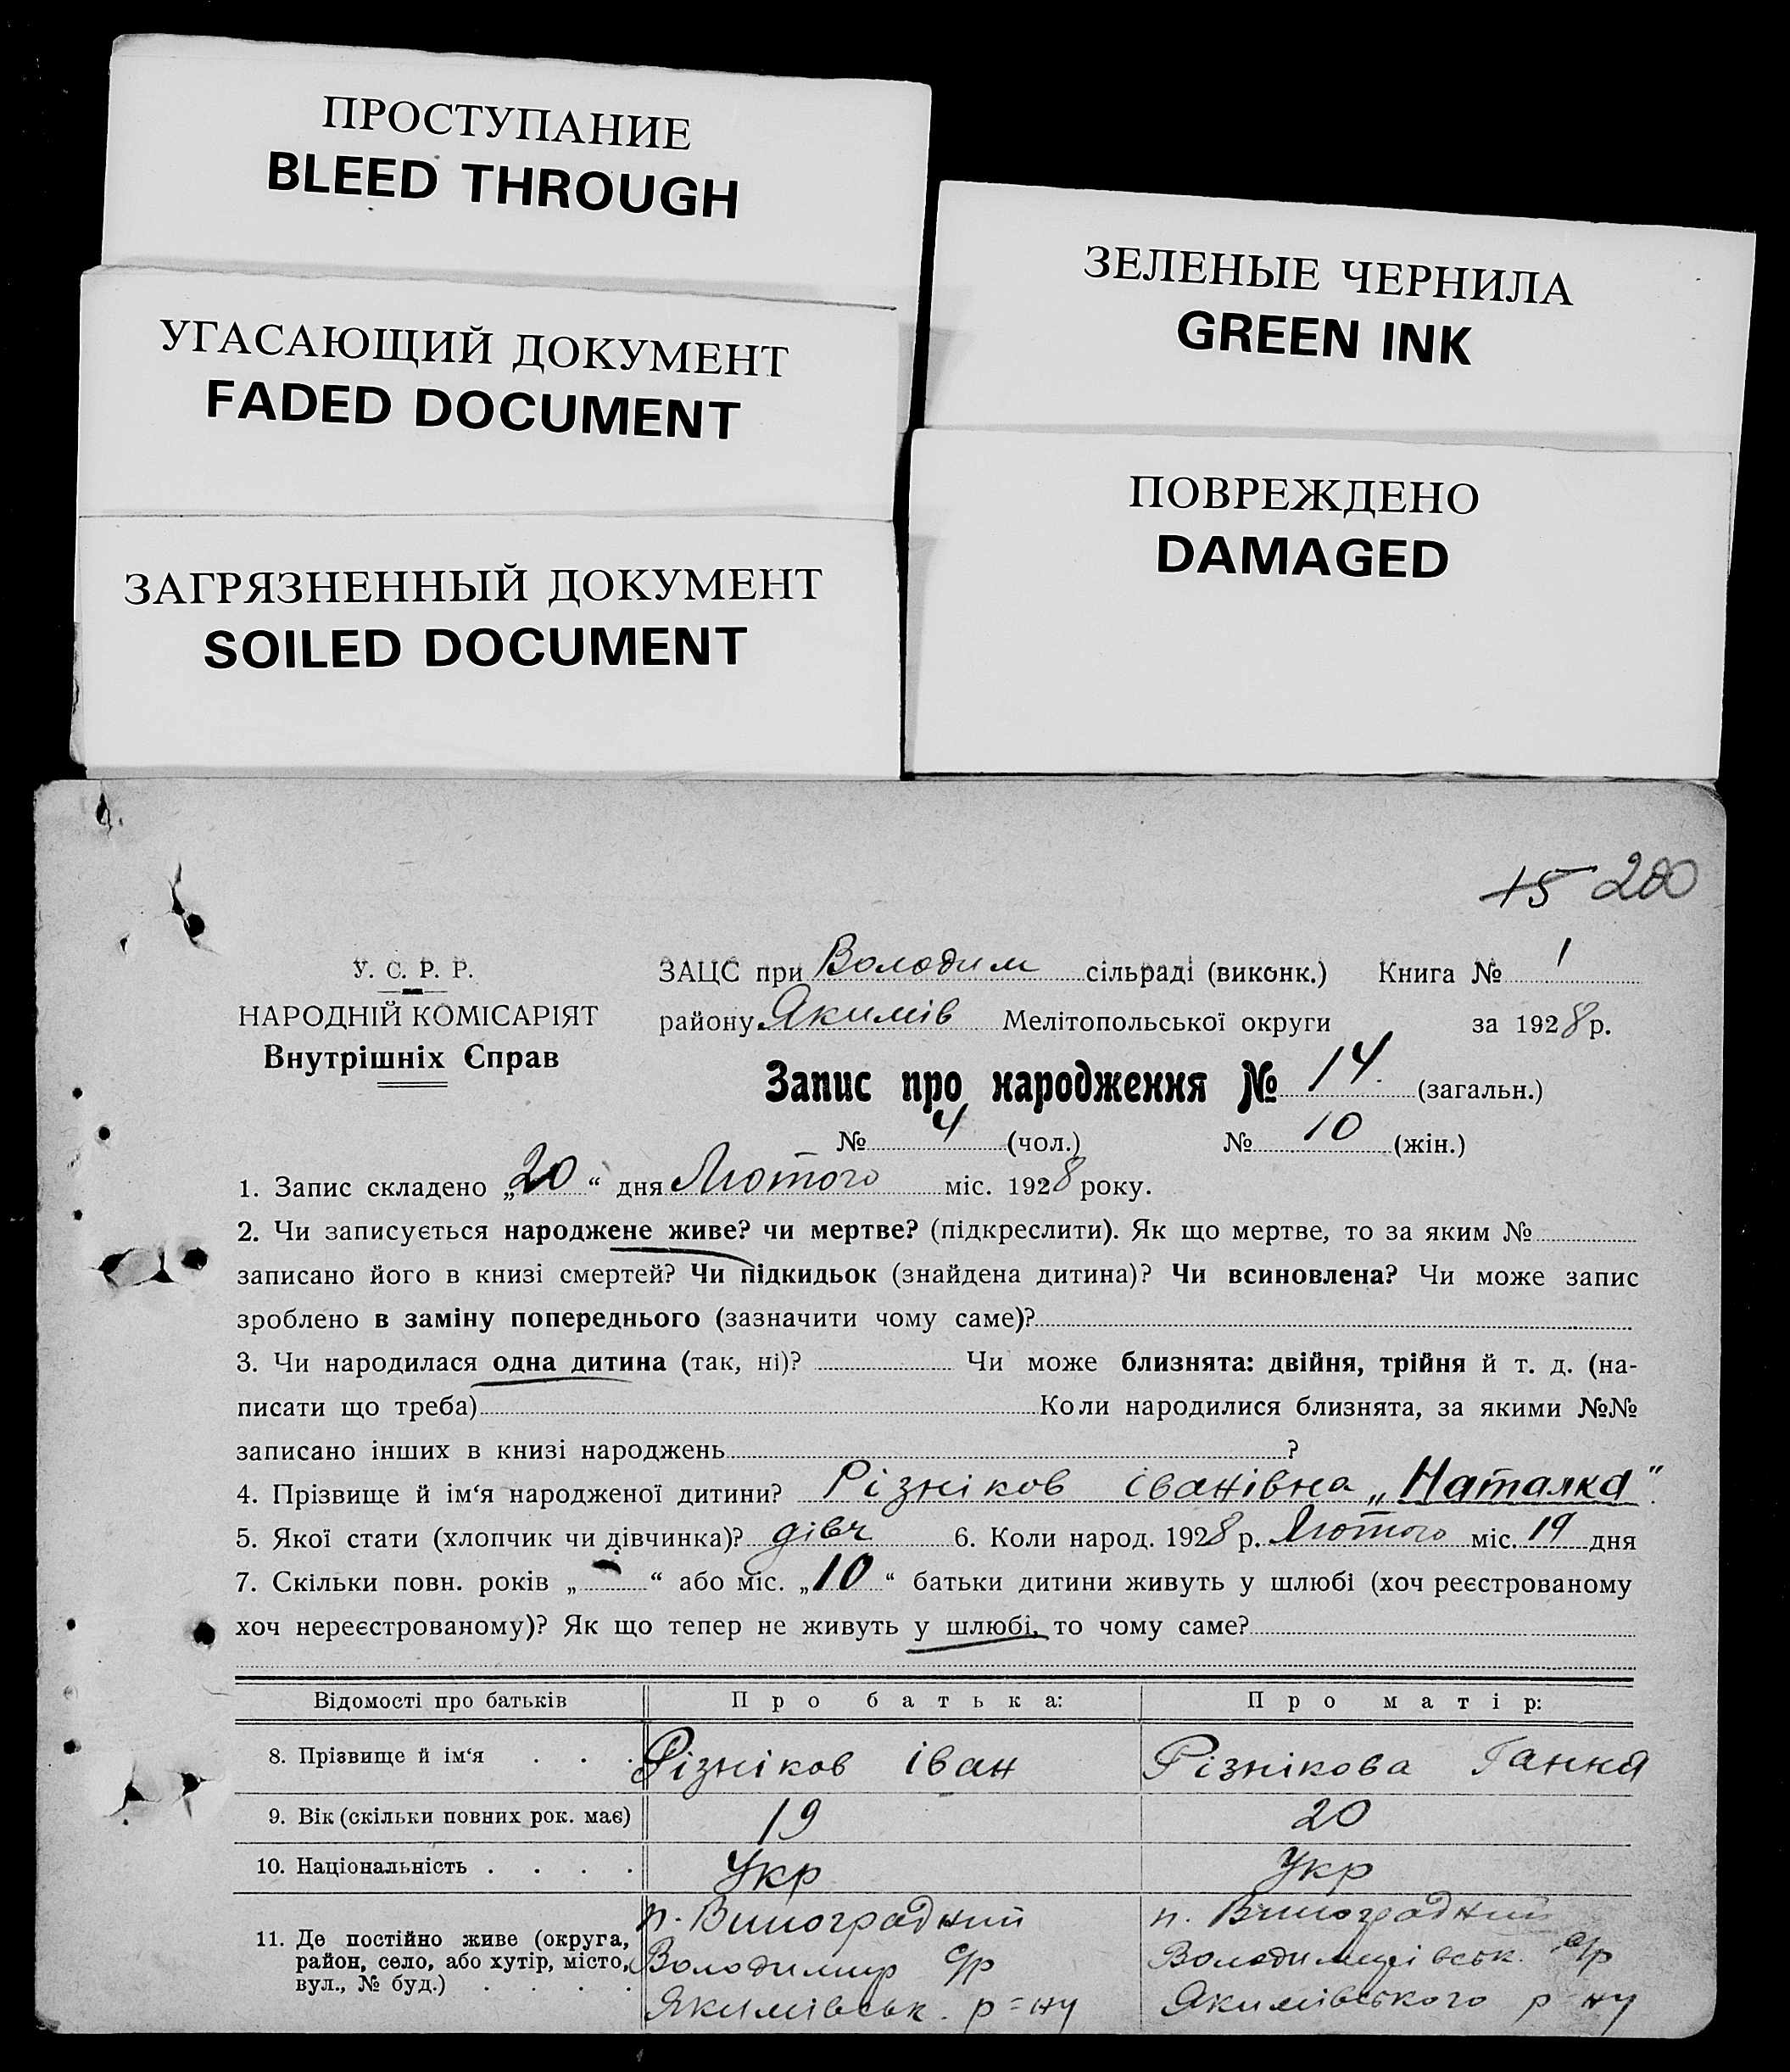 ПРОСТУПАНИЕ
BLEED THROUGH
ЗЕЛЕНЫЕ ЧЕРНИЛА
GREEN INK
УГАСАЮЩИЙ ДОКУМЕНТ
FADED DOCUMENT
ПОВРЕЖДЕНО
DAMAGED
ЗАГРЯЗНЕННЫЙ ДОКУМЕНТ
SOILED DOCUMENT
15 200
У. С. Р. Р.
НАРОДНІЙ КОМІСАРІЯТ
Внутрішніх Справ
ЗАЦС при Володим сільраді (виконк.) Книга № 1
району Якимів Мелітопольської округи за 1928 р.
Запис про народження № 14 (загальн.)
№ 4 (чол.) № 10 (жін.)
1. Запис складено „20“ дня Лютого міс. 1928 року.
2. Чи записується народжене живе? чи мертве? (підкреслити). Як що мертве, то за яким №
записано його в книзі смертей? Чи підкидьок (знайдена дитина)? Чи всиновлена? Чи може запис
зроблено в заміну попереднього (зазначити чому саме)?
3. Чи народилася одна дитина (так, ні)? Чи може близнята: двійня, трійня й т. д. (на-
писати що треба) Коли народилися близнята, за якими №№
записано інших в книзі народжень ?
4. Прізвище й ім‘я народженої дитини? Різніков іванівна „Наталка“.
5. Якої стати (хлопчик чи дівчинка)? дівч 6. Коли народ. 1928 р. Лютого міс. 19 дня
7. Скільки повн. років „-“ або міс. „10“ батьки дитини живуть у шлюбі (хоч реєстрованому
хоч нереєстрованому)? Як що тепер не живуть у шлюбі, то чому саме?
Відомості про батьків Про батька: Про матір:
8. Прізвище й ім‘я . . . Різніков іван Різнікова Ганна
9. Вік (скільки повних рок. має) 19 20
10. Національність . . . . Укр Укр
11. Де постійно живе (округа,
район, село, або хутір, місто,
вул., № буд.) . . . .
п. Виноградний
Володимир с/р
Якимівськ. р=ну
п. Виноградний
Володимирівськ. с/р
Якимівського р-ну